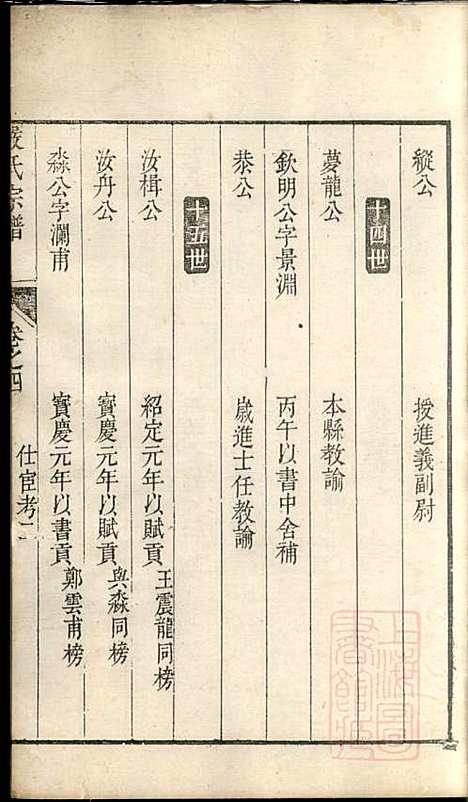 縱公 授進義副尉
十四世
夢龍公 本縣教諭
欽明公字景淵 丙午以書中舍補
恭公 歲進士任教諭
十五世
汝楫公 紹定元年以賦貢 王震龍同榜
汝丹公 寶慶元年以賦貢 與淼同榜
淼公字瀾甫 寶慶元年以書貢 鄭雲甫榜
嚴氏宗譜 卷之四 仕宦考二
上海圖書館藏